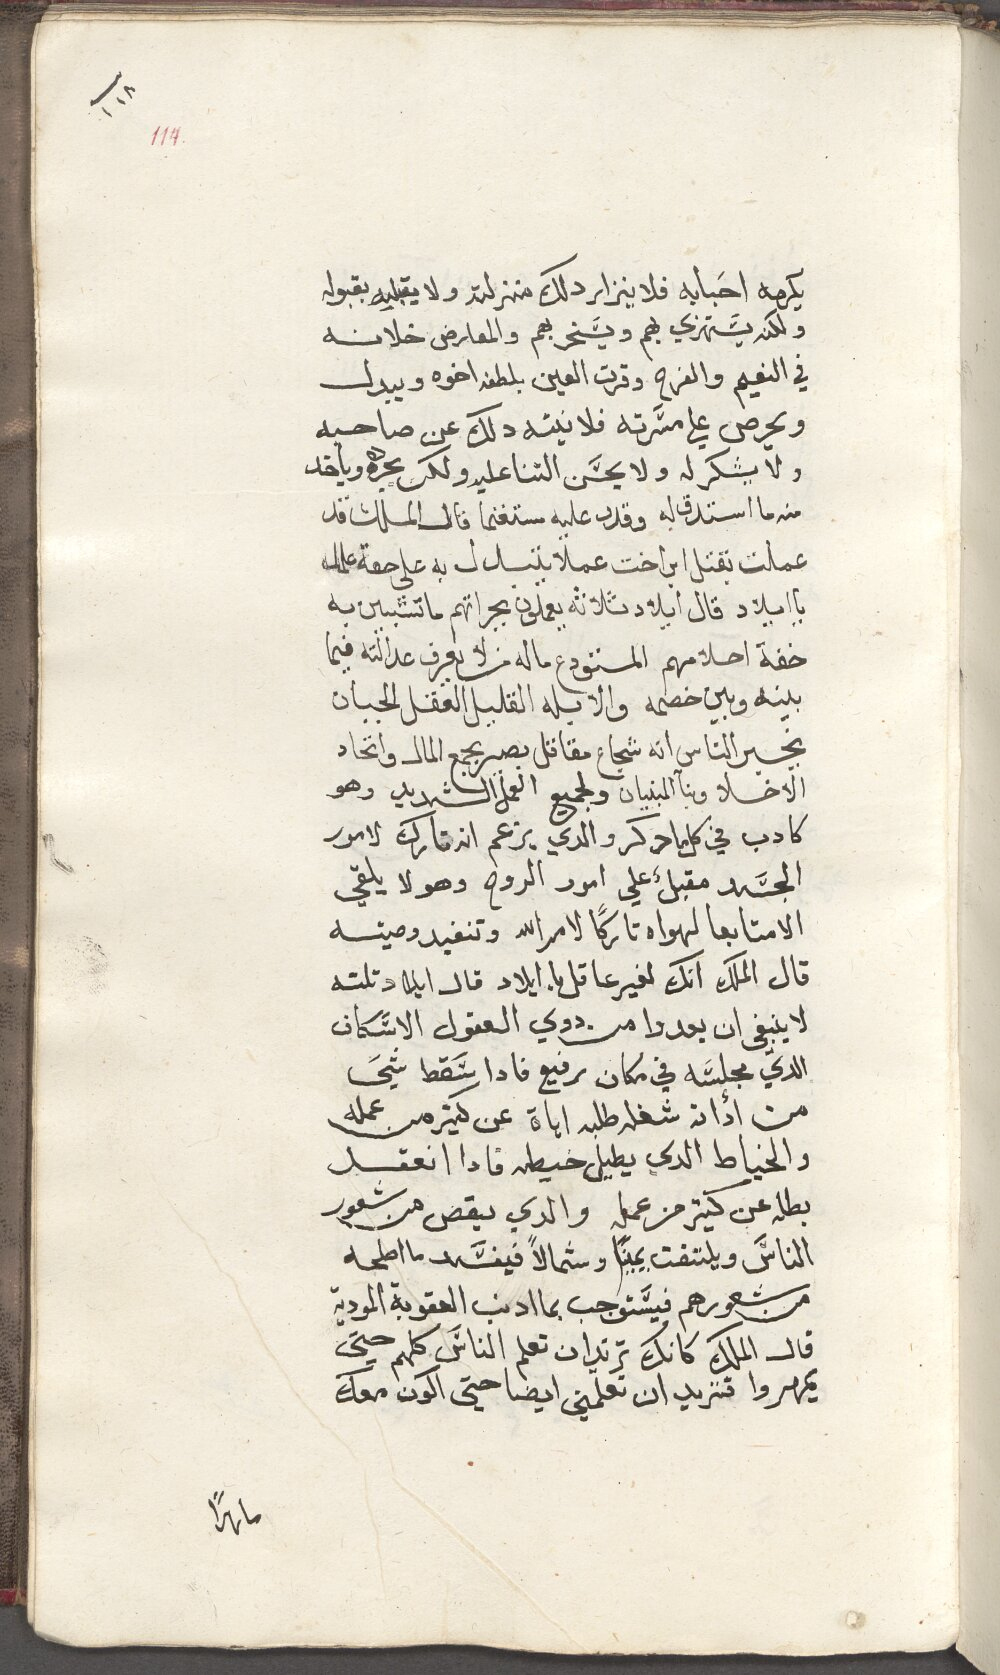 ١١٨
114.
يكرمه احبابه فلا يزار دلك منزلته ولا يقبله بقبوله
ولكن يستهزي بهم ويسخر بهم والمعارض خلانه
في النعيم والفرح وقرت العين بلطفه اخوه ويبدل
ويحرص علي مسرته فلا يثنه دلك عن صاحبه
ولا يشكر له ولا يحسن الثنا عليه ولكن يجره وياخد
منه ما استد قاله وقدر عليه مستغنما قال الملك قد
عملت بقتل ايراخت عملا يستدل به على خفة عقلك
يا ايلاد قال ايلاد ثلاثه يعملون بجراتهم ما تستبين به
خفة احلامهم المستودع ماله من لا يعرف عدالته فيما
بينه وبين خصمه والابله القليل العقل الجبان
يخبر الناس انه شجاع مقاتل بصير بجمع المال واتخاد
الاخلا وبنا البنيان ولجميع العمل الشديد وهو
كادب في كل ما دكر والدي يزعم انه تارك لامور
الجسد مقبل علي امور الروح وهو لا يلقي
الا متابعا لهواه تاركا لامر الله وتنفيد وصيته
قال الملك انك لغير عاقل يا ايلاد قال ايلاد تلته
لا ينبغي ان يعدوا من دوي العقول الاسكاف
الدي مجلسه في مكان رفيع فادا سقط شي
من أداته شغله طلبه اياه عن كثير من عمله
والخياط الدي يطيل خيطه فادا انعقد
بطله عن كثير من عمله والدي يقص من شعور
الناس ويلتفت يمينا وشمالا فيفسد ما اصلحه
من شعورهم فيستوجب بما ادنب العقوبة المودية
قال الملك كانك تريد ان تعلم الناس كلهم حتي
يمهروا فتريد ان تعلمني ايضا حتي اكون معك
ماهرا